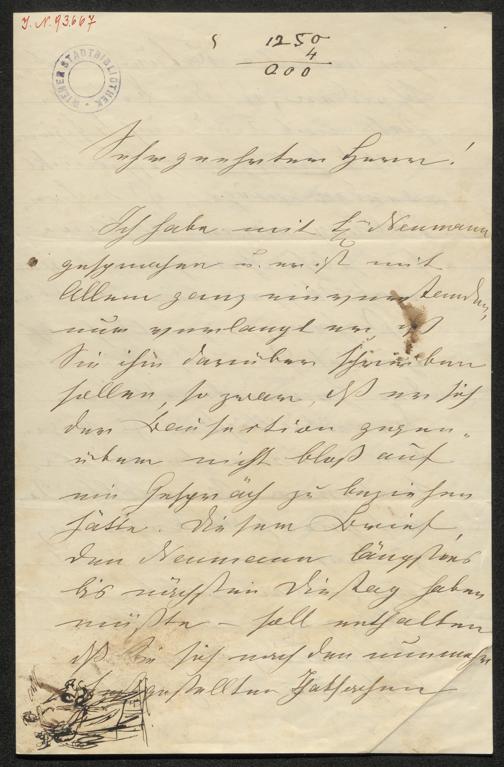 J. N. 93.667
1250
4
000
WIENER STADTBIBLIOTHEK
Sehr geehrter Herr!
Ich habe mit Neumann
gesprochen u. er ist mit
Allem ganz einverstanden,
nur verlangt er, dß
Sie ihm darüber schreiben
sollen, so zwar, dß er sich
der Bausektion gegen-
über nicht bloß auf
ein Gespräch zu beziehen
hätte. Diesen Brief,
den Neumann längstens
bis nächsten Dienstag haben
müßte – soll enthalten
dß Sie sich nach den nunmehr
gestellten Thatsachen